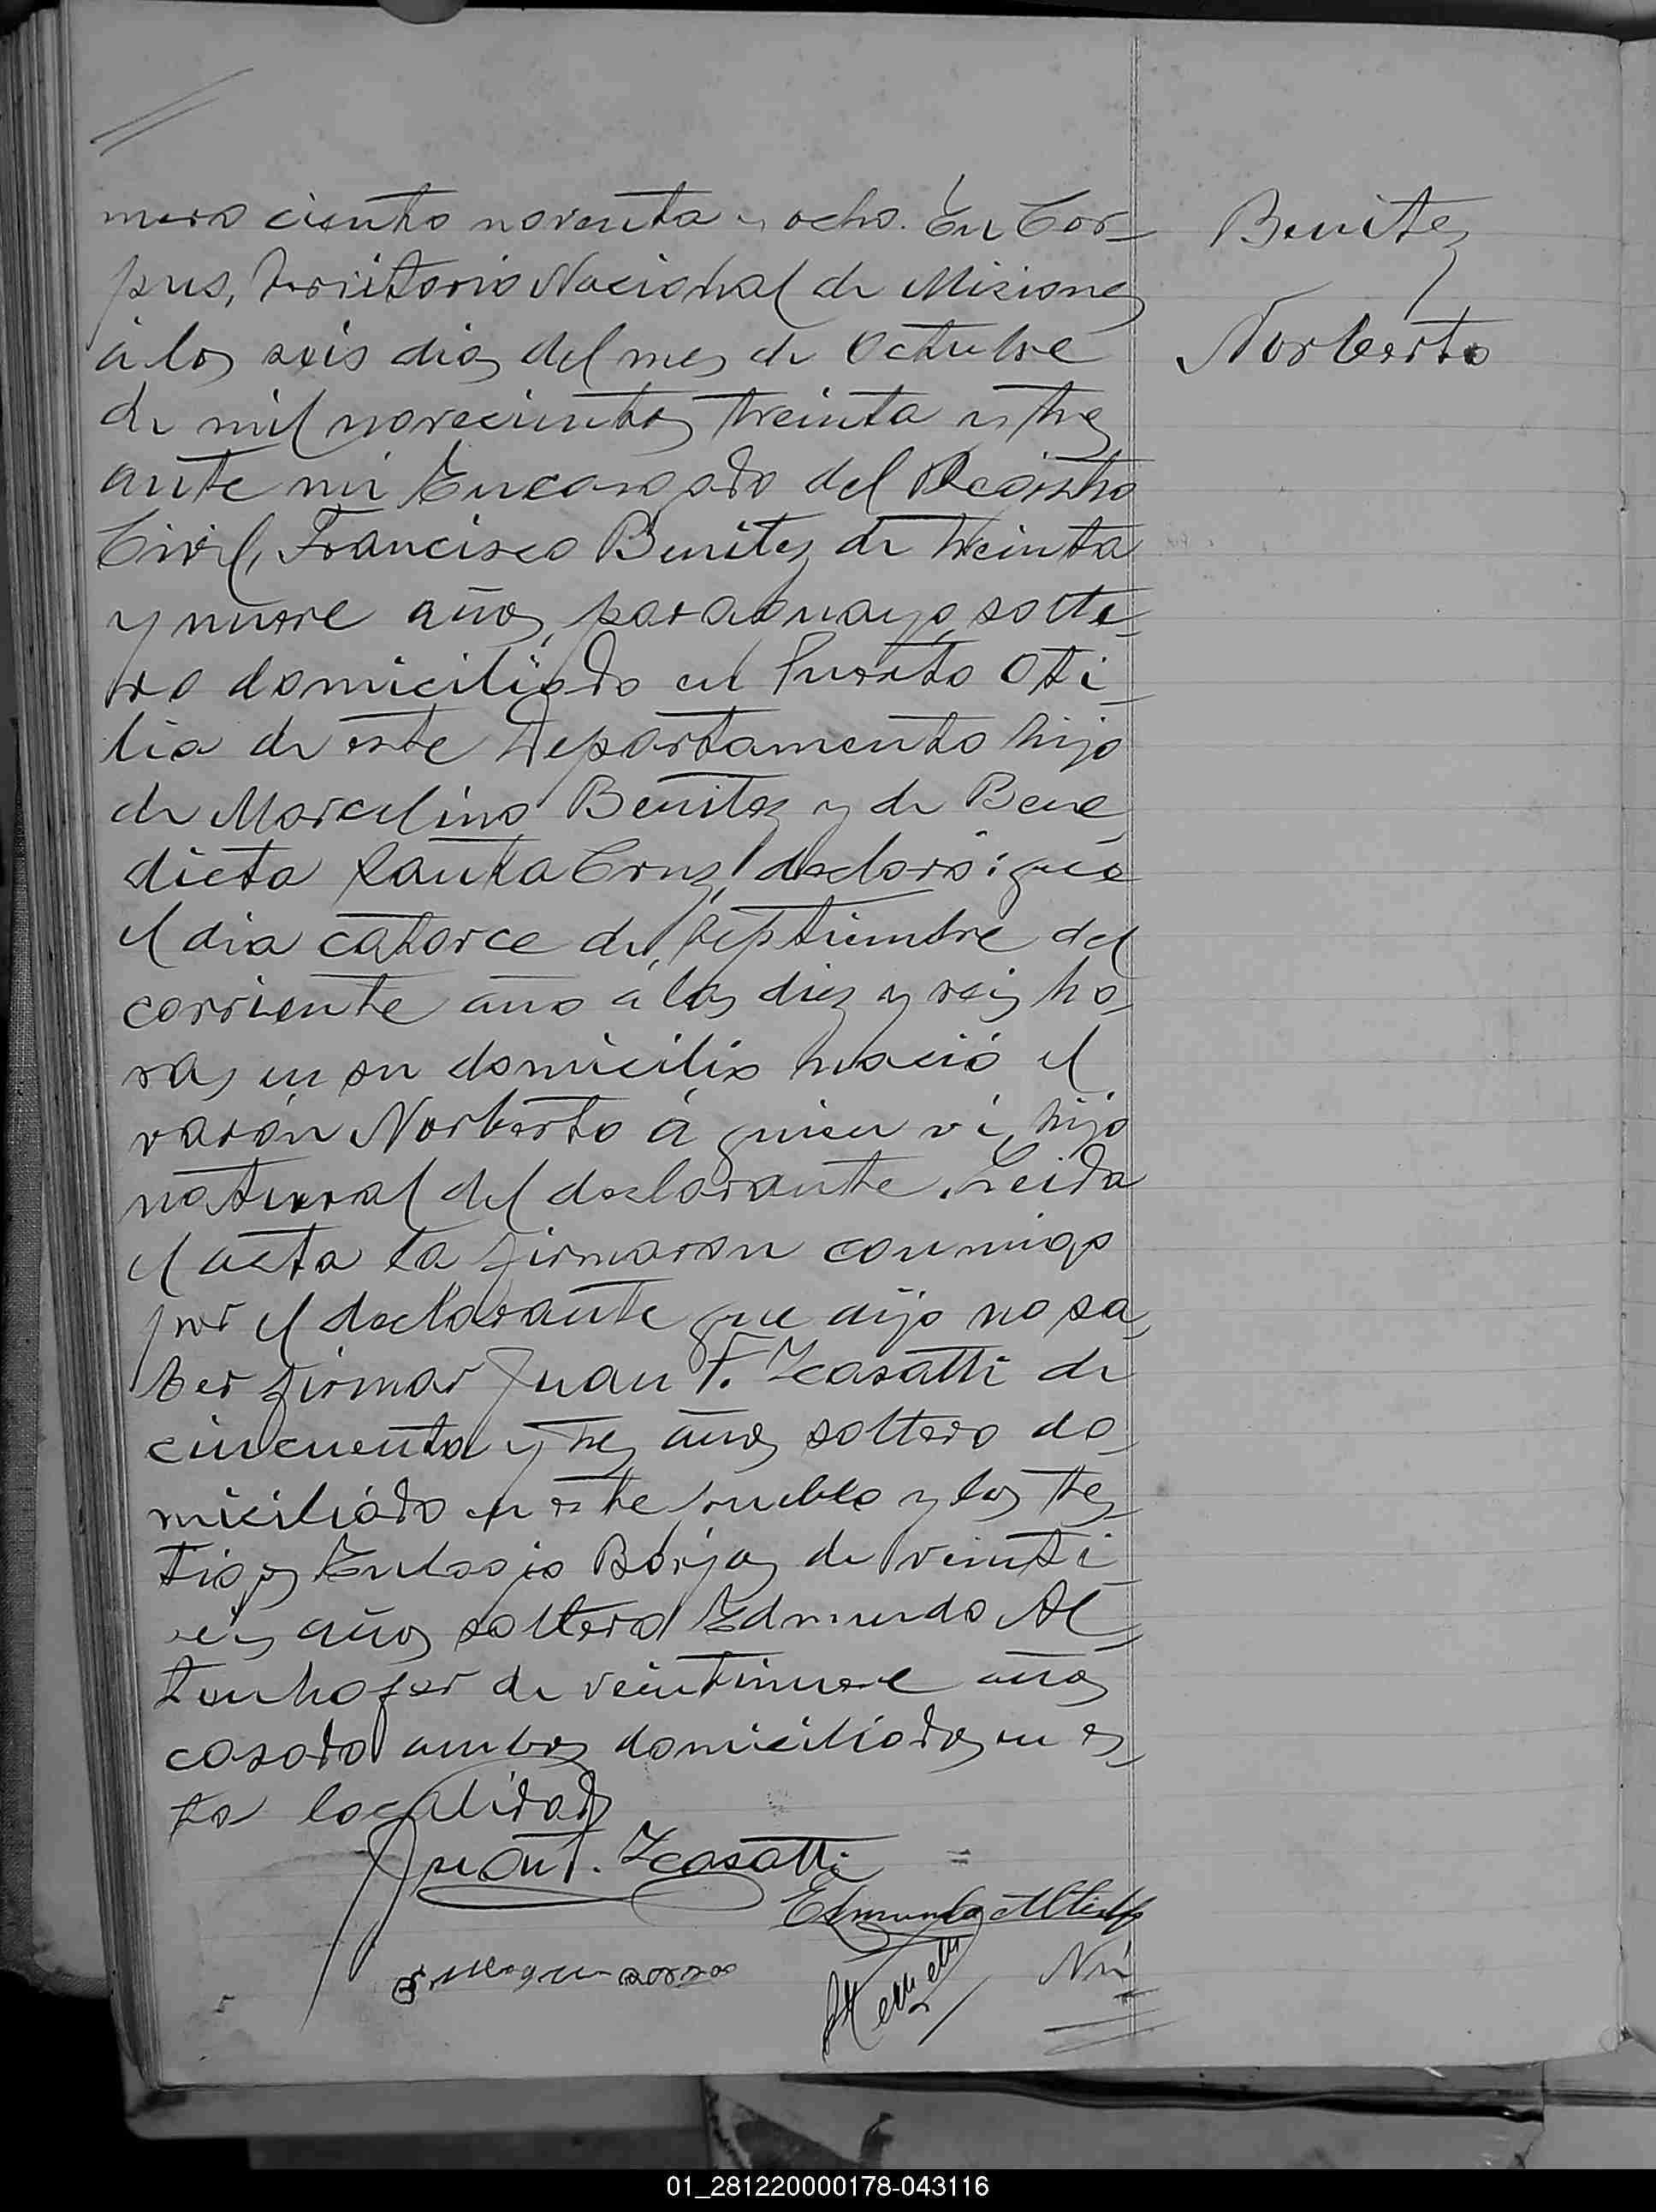 mero ciento noventa y ocho. En Cor-
pus, Territorio Nacional de Misiones
á los seis dias del mes de Octubre
de mil novecientos treinta y tres
ante mi Encargado del Registro
Civil, Francisco Benitez de treinta
y nueve años, paraguayo, solte-
ro domiciliado en Puerto Oti-
lia de este Departamento hijo
de Marcelino Benitez y de Bene
dicta Santa Cruz, declaró: que
el dia catorce de Septiembre del
corriente año a las diez y seis ho-
ras en su domicilio nació el
varón Norberto á quien vi, hijo
natural del declarante. Leida
el acta la firmaron conmigo
por el declarante que dijo no sa-
ber firmar Juan F. Zcasatti de
cincuenta y tres años soltero do-
miciliado en este pueblo y los tes-
tigos Eulogio Borjas de veinti-
seis años soltero Edmundo Al-
tenhofer de veintinueve años
casado ambos domiciliados en es-
ta localidad
Benitez
Norberto
Juan F. Zcasatti
Edmundo
Nú
01_281220000178-043116